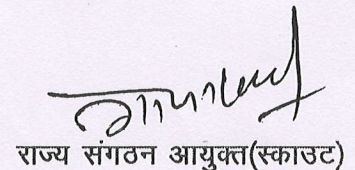 राज्य संगठन आयुक्त(स्काउट)